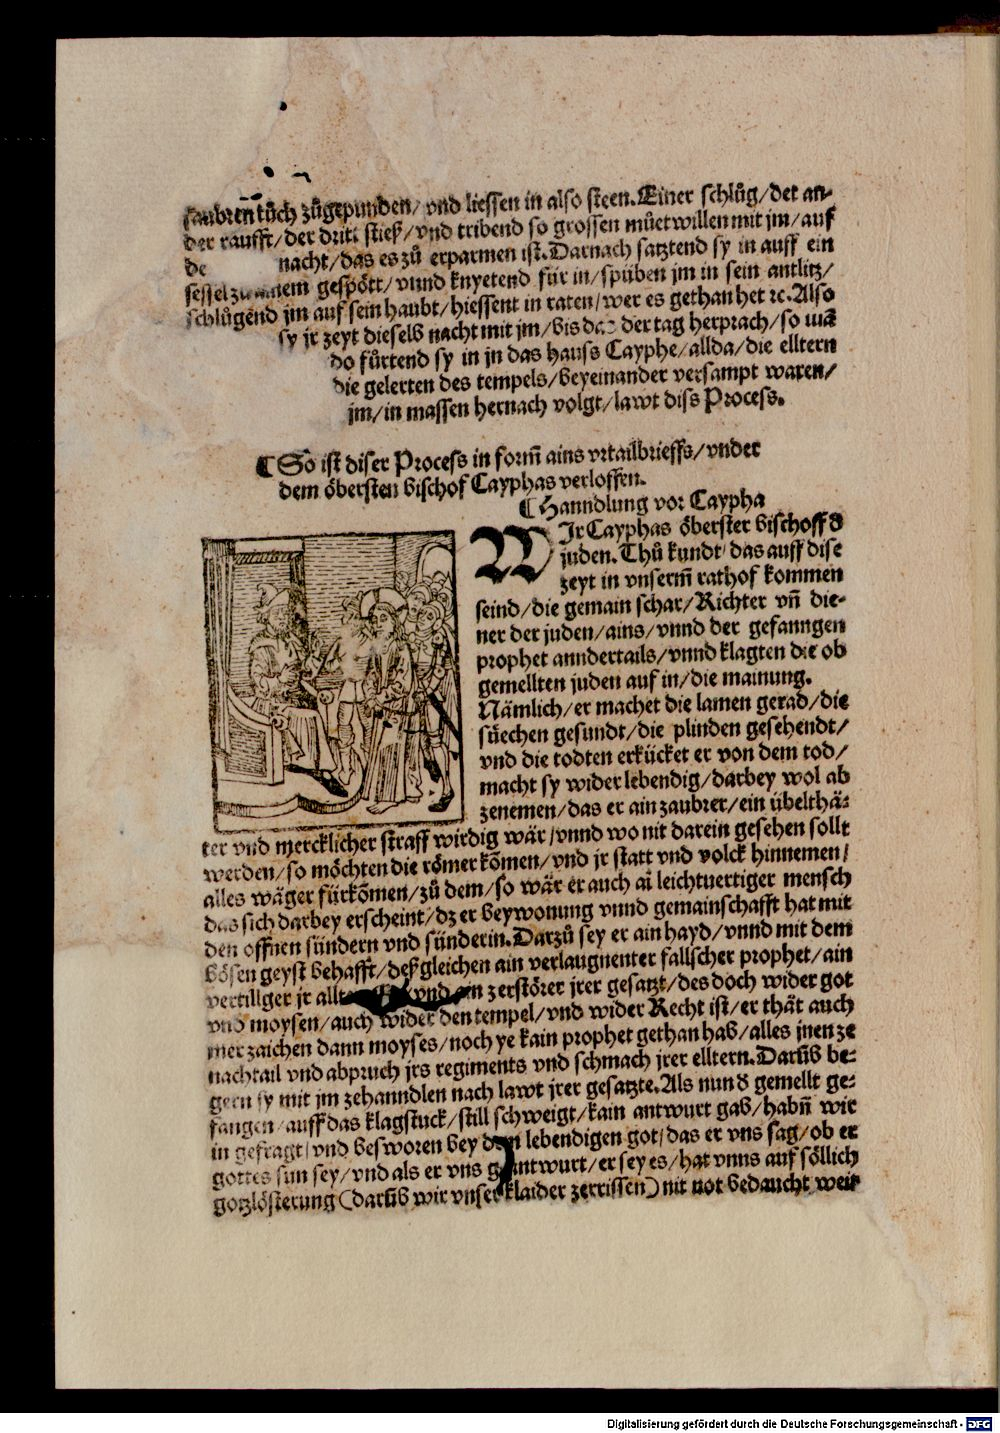 saubren tůch zůgepunden/ vnd liessen in also steen. Einer schlůg/ det an-
der raufft/ der drit stieß/ vnd tribend so grossen můetwillen mit jm/ auf
de nacht/ das es zů erparmen ist. Darnach satztend sy in auff ein
sessel zu ainem gespött/ vnnd knyetend für in/ spüben jm in sein antlitz/
schlůgend jm auf sein haubt/ hiessent in raten/ wer es gethan het ꝛc. Also
sy jr zeyt dieselb nacht mit jm/ bis das der tag herprach/ so wā
do fůrtend sy in jn das hauss Cayphe/ allda/ die elltern
die gelerten des tempels/ beyeinander versampt waren/
jm/ in massen hernach volgt/ lawt diss Process.
¶ So ist diser Process in form̄ ains vrtailbrieffs/ vnder
dem öbersten bischof Cayphas verloffen.
¶ Hanndlung vor Caypha
WIr Cayphas öberster bischoff d
juden. Thů kundt/ das auff dise
zeyt in vnserm̄ rathof kommen
seind/ die gemain schar/ Richter vn̄ die-
ner der juden/ ains/ vnnd der gefanngen
prophet anndertails/ vnnd klagten die ob
gemellten juden auf in/ die mainung.
Nämlich/ er machet die lamen gerad/ die
süechen gesundt/ die plinden gesehendt/
vnd die todten erkücket er von dem tod/
macht sy wider lebendig/ darbey wol ab
zenemen/ das er ain zaubrer/ ein übelthä-
ter vnd mercklicher straff wirdig wär/ vnnd wo nit darein gesehen sollt
werden/ so möchten die römer kōmen/ vnd jr statt vnd volck hinnemen/
alles wäger fürkōmen/ zů dem/ so wär er auch aī leichtuertiger mensch
das sich darbey erscheint/ dz er beywonung vnnd gemainschafft hat mit
den offnen sündern vnd sünderin. Darzů sey er ain hayd/ vnnd mit dem
bösen geyst behafft/ deßgleichen ain verlaugnenter fallscher prophet/ ain
vertillger jr allt vnd ain zerstörer jrer gesatzt/ des doch wider got
vnd moysen/ auch wider den tempel/ vnd wider Recht ist/ er thät auch
mer zaichen dann moyses/ noch ye kain prophet gethan hab/ alles jnen ze
nachtail vnd abpruch jrs regiments vnd schmach jrer elltern. Darūb be-
gern sy mit jm zehanndlen nach lawt jrer gesatzte. Als nun d gemellt ge-
fangen/ auff das klagstuck/ still schweigt/ kain antwurt gab/ habn̄ wir
in gefragt/ vnd besworen bey dem lebendigen got/ das er vns sag/ ob er
gottes sun sey/ vnd als er vns geantwurt/ er sey es/ hat vnns auf söllich
gotzlösterung (darūb wir vnser klaider zerrissen) nit not bedaucht weit
Digitalisierung gefördert durch die Deutsche Forschungsgemeinschaft - DFG